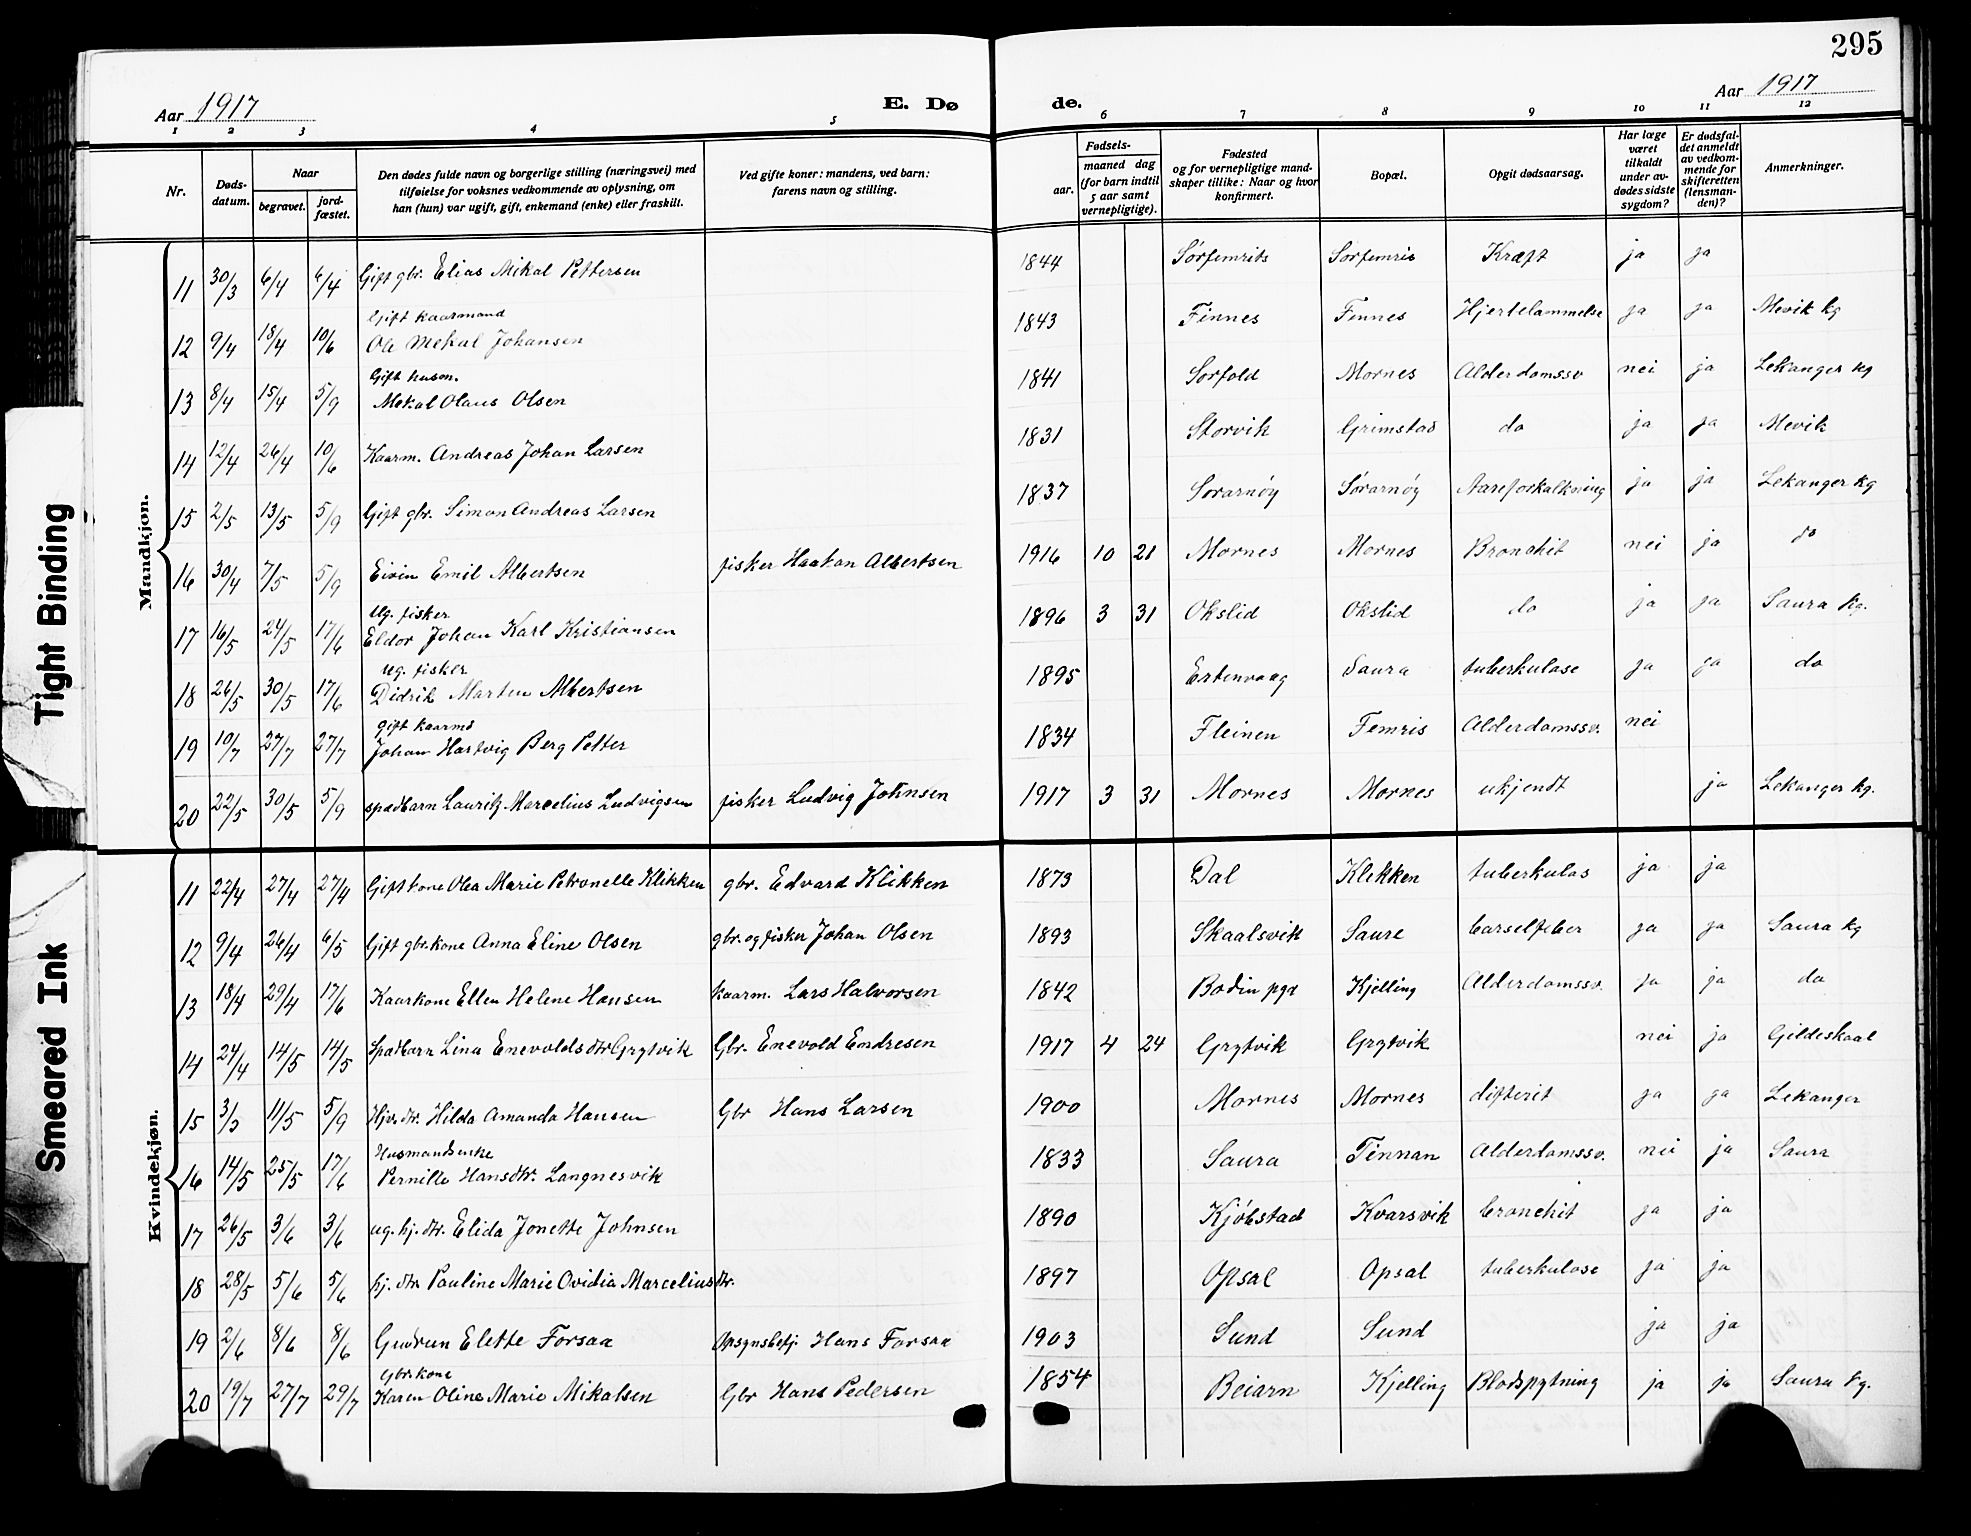 295
Aar 1917 E. Dø de. Aar 1917
1 2 3 4 5 6 7 8 9 10 11 12
Nr. Døds-datum. Naar begravet. jord-fæstet. Den dødes fulde navn og borgerlige stilling (næringsvei) med tilføielse for voksnes vedkommende av oplysning, om han (hun) var ugift, gift, enkemand (enke) eller fraskilt. Ved gifte koner: mandens, ved barn: farens navn og stilling. Fødsels- aar. maaned dag (for barn indtil 5 aar samt vernepligtige). Fødested og for vernepligtige mand-skaper tillike: Naar og hvor konfirmert. Bopæl. Opgit dødsaarsag. Har læge været tilkaldt under av-dødes sidste sygdom? Er dødsfal-det anmeldt av vedkom-mende for skifteretten (lensman-den)? Anmerkninger.
Mandkjøn.
11 30/3 6/4 6/4 Gift gbr. Elias Mikal Pettersen 1844 Sørfemrits Sorfemris Kræft ja ja
Gift kaarmand
12 9/4 18/4 10/6 Ole Mekal Johansen 1843 Finnes Finnes Hjertelammelse ja ja Mevik kg
Gift husm.
13 8/4 15/4 5/9 Mekal Olaus Olsen 1841 Sorfold Mornes Alderdomssv nei ja Lekanger kg
14 12/4 26/4 10/6 Kaarm. Andreas Johan Larsen 1831 Storvik Grimstad do ja ja Mevik
15 2/5 13/5 5/9 Gift gbr. Simon Andreas Larsen 1837 Sorarnöy Sørarnöy Aareforkalkning ja ja Lekanger kg
16 30/4 7/5 5/9 Eivin Emil Albertsen fisker Haakon Albertsen 1916 10 21 Mornes Mornes Bronchit nei ja do
Ug. fisker
17 16/5 24/5 17/6 Eldor Johan Karl Kristiansen 1896 3 31 Okslid Okslid do ja ja Saura kg.
ug. fisker
18 26/5 30/5 17/6 Didrik Marten Albertsen 1895 Ertenvaag Saura tuberkulose ja ja do
gift kaarmd
19 10/7 27/7 27/7 Johan Hartvig Berg Petter 1834 Fleinen Femris Alderdomssv. nei
20 22/5 30/5 5/9 spædbarn Lauritz Marcelius Ludvigsen fisker Ludvig Johnsen 1917 3 31 Mornes Mornes ukjendt ja Lekanger kg.
Kvindekjøn.
11 22/4 27/4 27/4 Gift kone Olea Marie Petronelle Klikken gbr. Edvard Klikken 1873 Dal Klekken tuberkulos ja ja
12 9/4 26/4 6/5 Gift gbr.kone Anna Eline Olsen gbr. og fisker Johan Olsen 1893 Skaalsvik Saure barselfeber ja ja Saura kg
13 18/4 29/4 17/6 Kaarkone Ellen Helene Hansen kaarm. Lars Halvorsen 1842 Bodin pgd Kjelling Alderdomssv. ja ja do
14 24/4 14/5 14/5 Spædbarn Lina Enevoldsdtr Grytvik Gbr. Enevold Endresen 1917 4 24 Grytvik Grytvik nei ja Gildeskaal
15 3/5 11/5 5/9 Hjv. dtr. Hilda Amanda Hansen Gbr Hans Larsen 1900 Mornes Mornes difterit ja ja Lekanger
Husmandsenke
16 14/5 25/5 17/6 Pernille Hansdtr. Langnesvik 1833 Saura Finnan Alderdomssv. nei ja Saura
17 26/5 3/6 3/6 ug. hj. dtr. Elida Jonette Johnsen 1890 Kjøbstad Kvarsvik bronchit ja ja
18 28/5 5/6 5/6 hj. dtr Pauline Marie Ovidia Marceliusdtr. 1897 Opsal Opsal tuberkulose ja ja
19 2/6 8/6 8/6 Gudrun Elette Forsaa Opsynsbetj. Hans Forsaa 1903 Sund Sund ja ja
Gbr.kone
20 19/7 27/7 29/7 Karen Oline Marie Mikalsen Gbr Hans Pedersen 1854 Beiarn Kjelling Blodspytning ja ja Saura kg.
Tight Binding
Smeared Ink